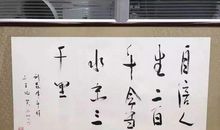 自信人
生二百
年会当
水击三
千里